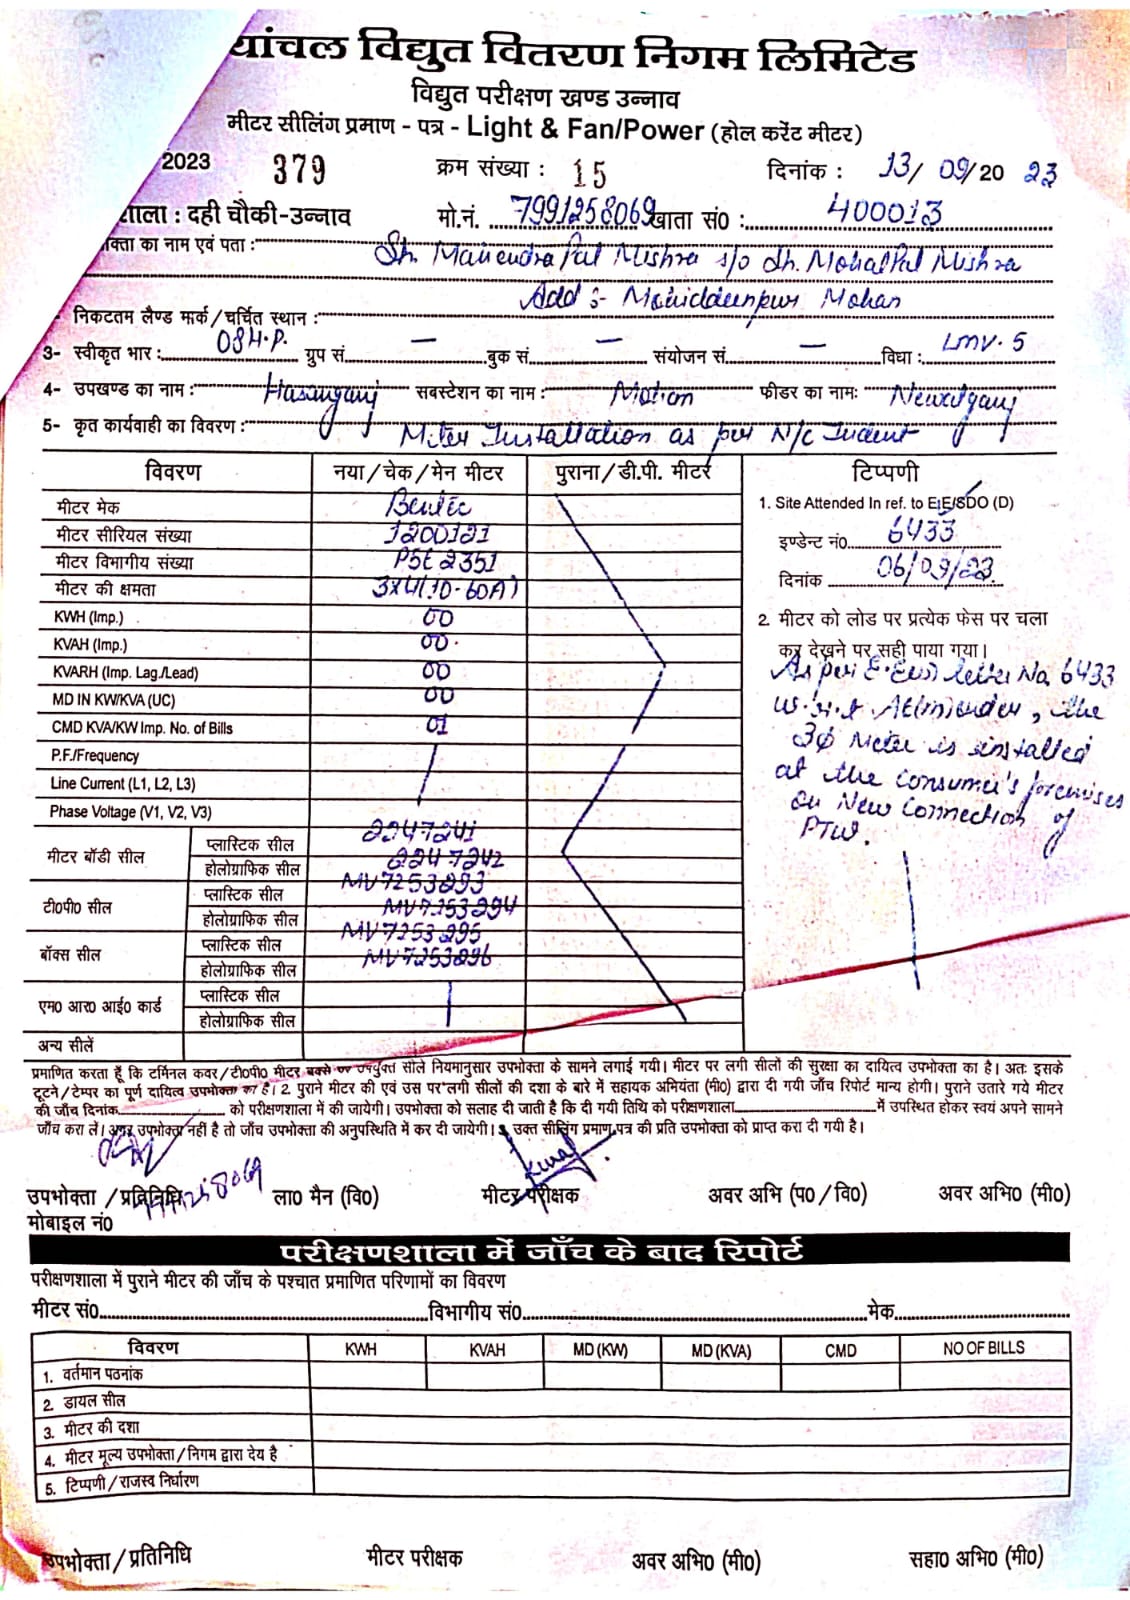 यांचल विद्युत वितरण निगम लिमिटेड
विद्युत परीक्षण खण्ड उन्नाव
मीटर सीलिंग प्रमाण - पत्र - Light & Fan/Power (होल करेंट मीटर)
2023 379 क्रम संख्या : 15 दिनांक : 13/ 09/20 23
शाला : दही चौकी-उन्नाव मो.नं. 7991258069 खाता सं० : 400013
क्ता का नाम एवं पता : Sh. Mahendra Pal Mishra s/o Sh. MohalPal Mishra
Add :- Mohiddeenpur Mohan
निकटतम लैण्ड मार्क / चर्चित स्थान :
3- स्वीकृत भार : 08H.P. ग्रुप सं. — बुक सं. — संयोजन सं. — विधा : LMV-5
4- उपखण्ड का नाम : Hasanganj सबस्टेशन का नाम : Mohan फीडर का नामः Newalganj
5- कृत कार्यवाही का विवरण : Meter Installation as per N/C Indent
विवरण नया / चेक / मेन मीटर पुराना / डी.पी. मीटर टिप्पणी
मीटर मेक Bentec
मीटर सीरियल संख्या 1200121
मीटर विभागीय संख्या PSE2351
मीटर की क्षमता 3X4(10-60A)
KWH (Imp.) 00
KVAH (Imp.) 00
KVARH (Imp. Lag./Lead) 00
MD IN KW/KVA (UC) 00
CMD KVA/KW Imp. No. of Bills 01
P.F./Frequency
Line Current (L1, L2, L3)
Phase Voltage (V1, V2, V3)
मीटर बॉडी सील प्लास्टिक सील 2247241
होलोग्राफिक सील 2247242
टी०पी० सील प्लास्टिक सील MV7253293
होलोग्राफिक सील MV7253294
बॉक्स सील प्लास्टिक सील MV7253295
होलोग्राफिक सील MV7253296
एम० आर० आई० कार्ड प्लास्टिक सील
होलोग्राफिक सील
अन्य सीलें
1. Site Attended In ref. to E.E/SDO (D)
इण्डेन्ट नं०. 6433
दिनांक 06/09/23
2. मीटर को लोड पर प्रत्येक फेस पर चला
कर देखने पर सही पाया गया।
As per E.E letter No. 6433
the
3φ Meter is installed
at the consumer's premises
on New Connection of
PTW.
प्रमाणित करता हूँ कि टर्मिनल कवर / टी०पी० मीटर बक्से पर उपर्युक्त सीले नियमानुसार उपभोक्ता के सामने लगाई गयी। मीटर पर लगी सीलों की सुरक्षा का दायित्व उपभोक्ता का है। अतः इसके
टूटने / टेम्पर का पूर्ण दायित्व उपभोक्ता का है। 2. पुराने मीटर की एवं उस पर लगी सीलों की दशा के बारे में सहायक अभियंता (मी०) द्वारा दी गयी जाँच रिपोर्ट मान्य होगी। पुराने उतारे गये मीटर
की जाँच दिनांक को परीक्षणशाला में की जायेगी। उपभोक्ता को सलाह दी जाती है कि दी गयी तिथि को परीक्षणशाला में उपस्थित होकर स्वयं अपने सामने
जाँच करा लें। अगर उपभोक्ता नहीं है तो जाँच उपभोक्ता की अनुपस्थिति में कर दी जायेगी। 3. उक्त सीलिंग प्रमाण पत्र की प्रति उपभोक्ता को प्राप्त करा दी गयी है।
उपभोक्ता / प्रतिनिधि 7991258069 ला० मैन (वि०) मीटर परीक्षक अवर अभि (प० / वि०) अवर अभि० (मी०)
मोबाइल नं०
परीक्षणशाला में जाँच के बाद रिपोर्ट
परीक्षणशाला में पुराने मीटर की जाँच के पश्चात प्रमाणित परिणामों का विवरण
मीटर सं० विभागीय सं० मेक
विवरण KWH KVAH MD (KW) MD (KVA) CMD NO OF BILLS
1. वर्तमान पठनांक
2. डायल सील
3. मीटर की दशा
4. मीटर मूल्य उपभोक्ता / निगम द्वारा देय है
5. टिप्पणी / राजस्व निर्धारण
उपभोक्ता / प्रतिनिधि मीटर परीक्षक अवर अभि० (मी०) सहा० अभि० (मी०)